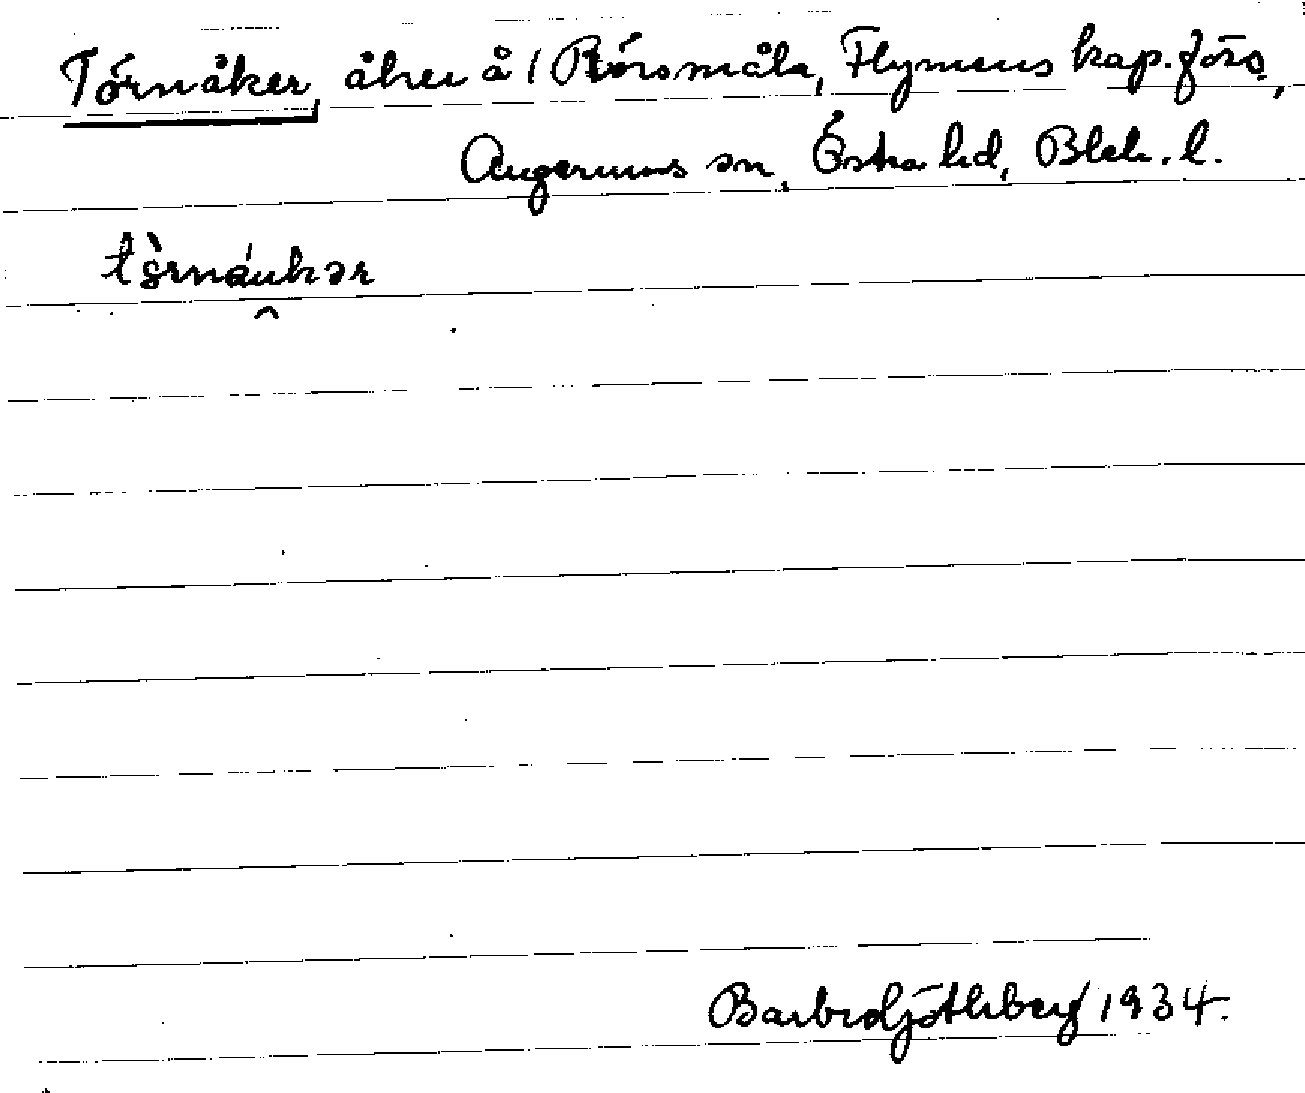 Törnåker, åker å 1 Rörsmåla, Flymens kap.förs.,
Augerums sn, Östra hd, Blek. l.
tö̀rnáukər
Barbro Göthberg 1934.